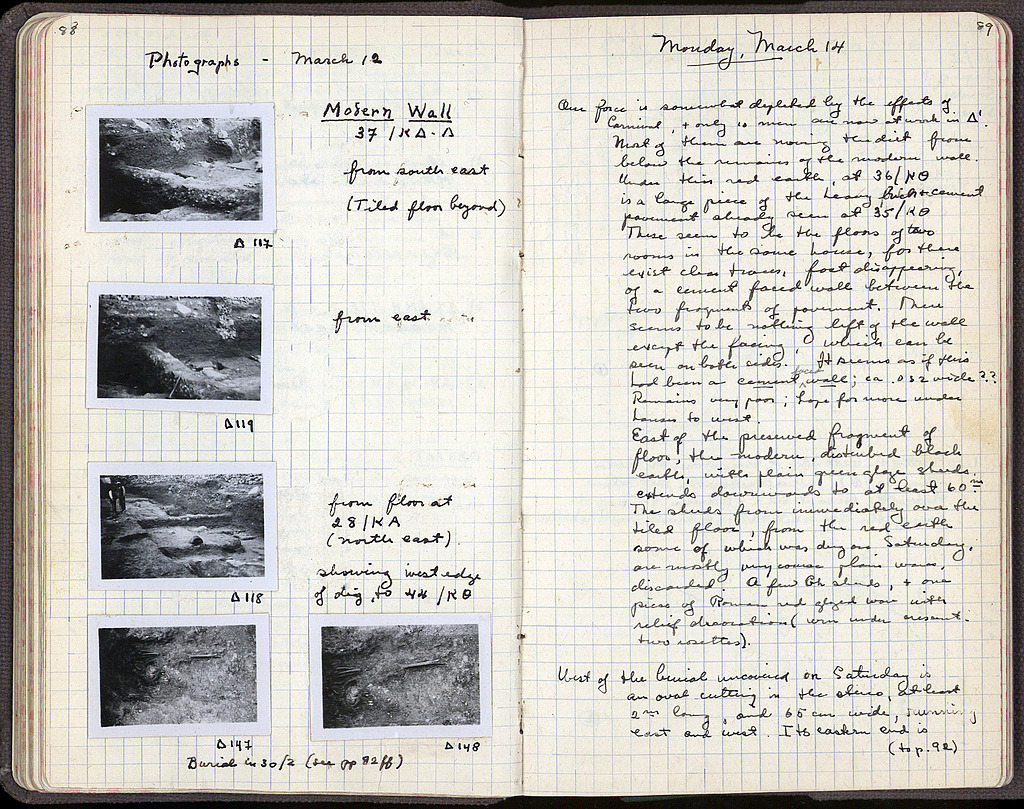 88
Photographs - March 12
Modern Wall
37/ΚΔ-Δ
from south east
(Tiled floor beyond)
Δ 117
from east
Δ 119
from floor at
28/ΚΛ
(north east)
showing west edge
of dig, to 44/ΚΘ
Δ 118
Δ 147
Δ 148
Burial in 30/2 (see pp 82 ff)
89
Monday, March 14
Our force is somewhat depleted by the effects of
Carnival, + only 10 men are now at work in Δ'.
Most of them are moving the dirt from
below the remains of the modern wall.
Under this red earth, at 36/ΚΘ
is a large piece of the heavy brick + cement
pavement already seen at 35/ΚΘ
These seem to be the floors of two
rooms in the same house, for there
exist clear traces, fast disappearing,
of a cement faced wall between the
two fragments of pavement. There
seems to be nothing left of the wall
except the facing, which can be
seen on both sides. It seems as if this
had been a cement faced wall; ca .032 wide??
Remains very poor; hope for more under
houses to west.
East of the preserved fragment of
floor, the modern, disturbed black
earth, with plain green glaze sherds,
extends downwards to at least 60 m
The sherds from immediately over the
tiled floor, from the red earth
some of which was dug on Saturday,
are mostly very coarse plain wares,
discarded. A few Gk sherds, + one
piece of Roman red glazed ware with
relief decoration (urn under crescent.
two rosettes).
West of the burial uncovered on Saturday is
an oval cutting in the stereo, at least
2 m long, and 65 cm wide, running
east and west. Its eastern end is
(to p. 92)